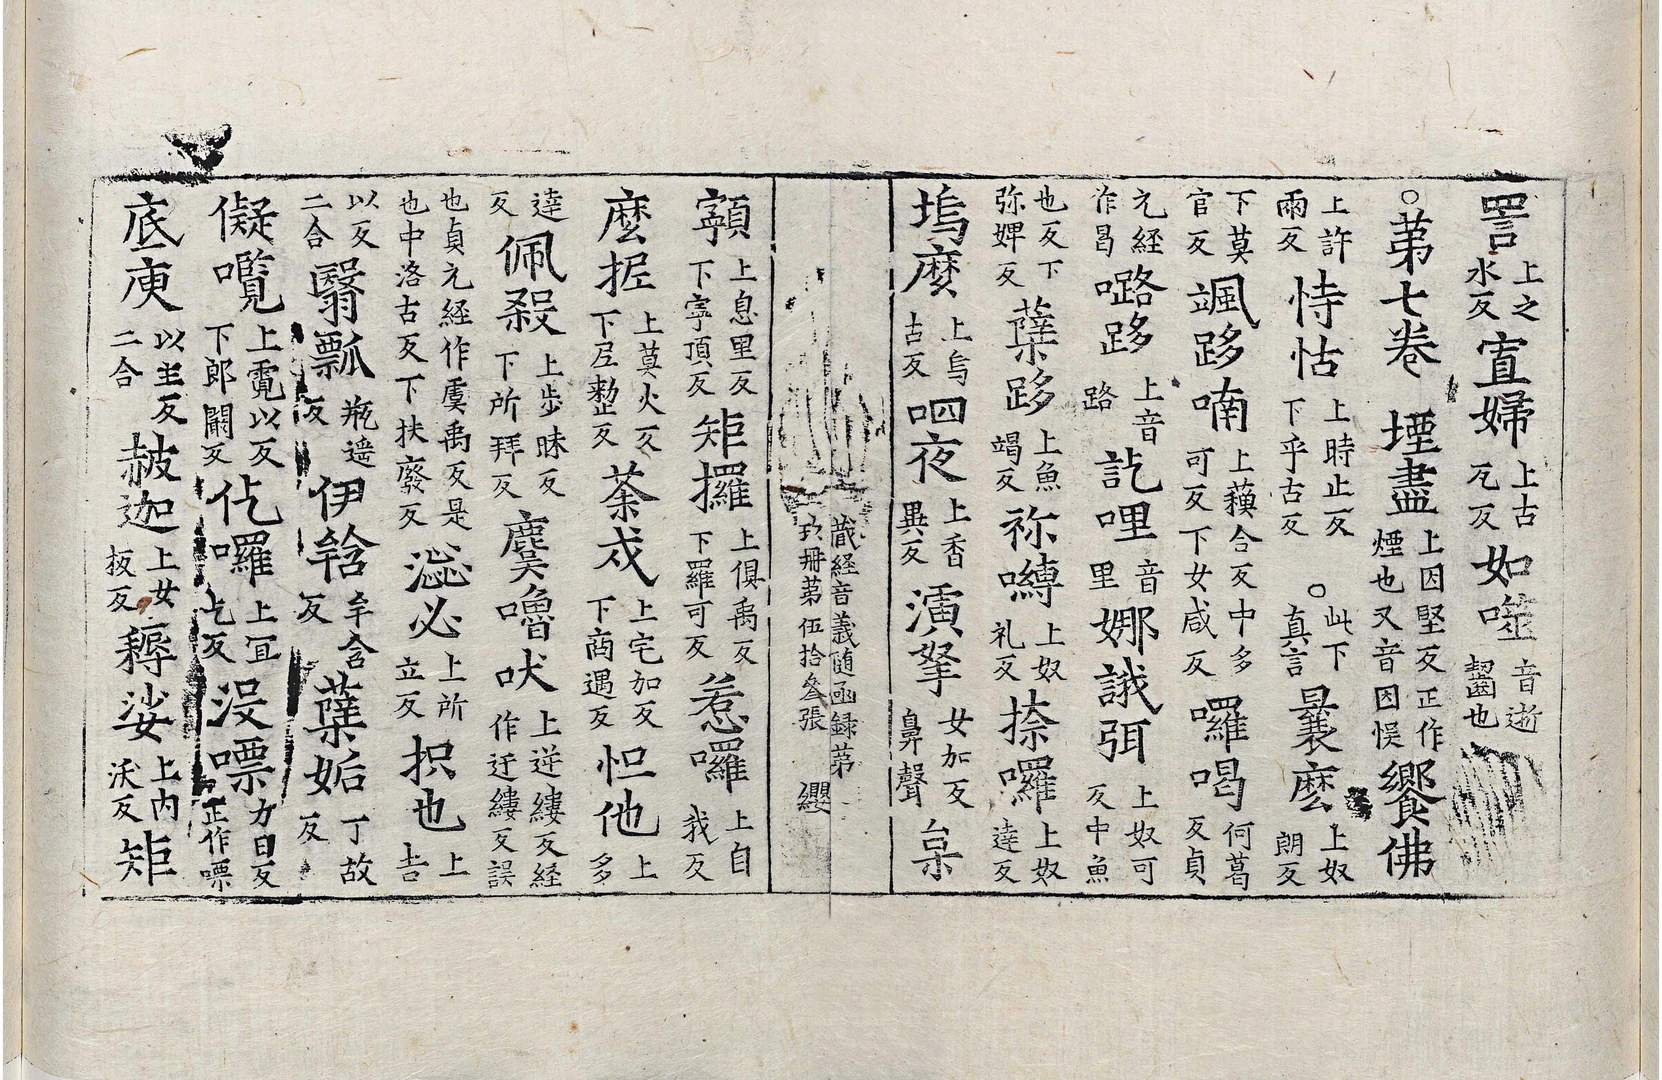 詈上之水反寡婦上古瓦反如噬音逝齧也
○第七卷 堙盡上因堅反正作煙也又音因悮饗佛
上許兩反恃怙上時止反下乎古反 ○此下真言曩麼上奴朗反
下莫官反颯跢喃上蘓合反中多可反下女咸反囉喝何葛反貞
元経作昌㘕跢上音路訖哩音里娜誐弭上奴可反中魚
也反下弥婢反蘖跢上魚竭反祢嚩上奴礼反捺囉上奴達反
塢麼上烏古反呬夜上香異反演拏女加反鼻聲枲
藏経音義随函録第
玖冊第伍拾叄張 纓
上息里反顊下寧頂反矩擢上俱禹反下羅可反惹囉上自我反
麼抳上莫火反下尼整反荼戍上宅加反下商遇反怛他上多
達反佩殺上歩昧反下所拜反麌嚕吠上逆縷反経作迂縷反誤
也貞元経作虞禹反是也中洛古反下扶廢反澁必上所立反抧也上吉
以反二合翳瓢瓶遥反伊䩭牟含反蘖妬丁故反
儗囕上霓以反下郎闞反仡囉上冝乞反没嘌力日反正作㗚
底庾以主反二合赧迦上女板反耨娑上内沃反矩